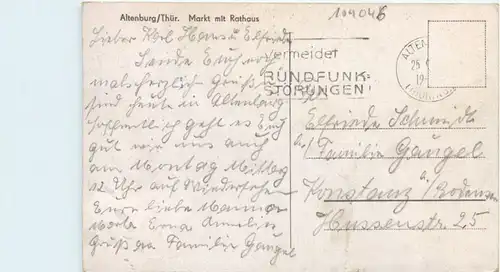 Altenburg/Thür. Markt mit Rathaus
109046
Lieber Karl Hans u Elfriede
Sende Euch noch
mals herzlich Grüße
sind heute in Altenburg
hoffentlich geht es Euch
gut wie uns auch
am Montag Mittag
12 Uhr auf Wiedersehen
Eure liebe Mama
Gruß an Familie Gaugel
Vermeidet
RUNDFUNK-
STÖRUNGEN
ALTEN
25
19
Elfriede Schmidt
a/ Familie Gaugel
Konstanz a/ Bodensee
Hussenstr 25